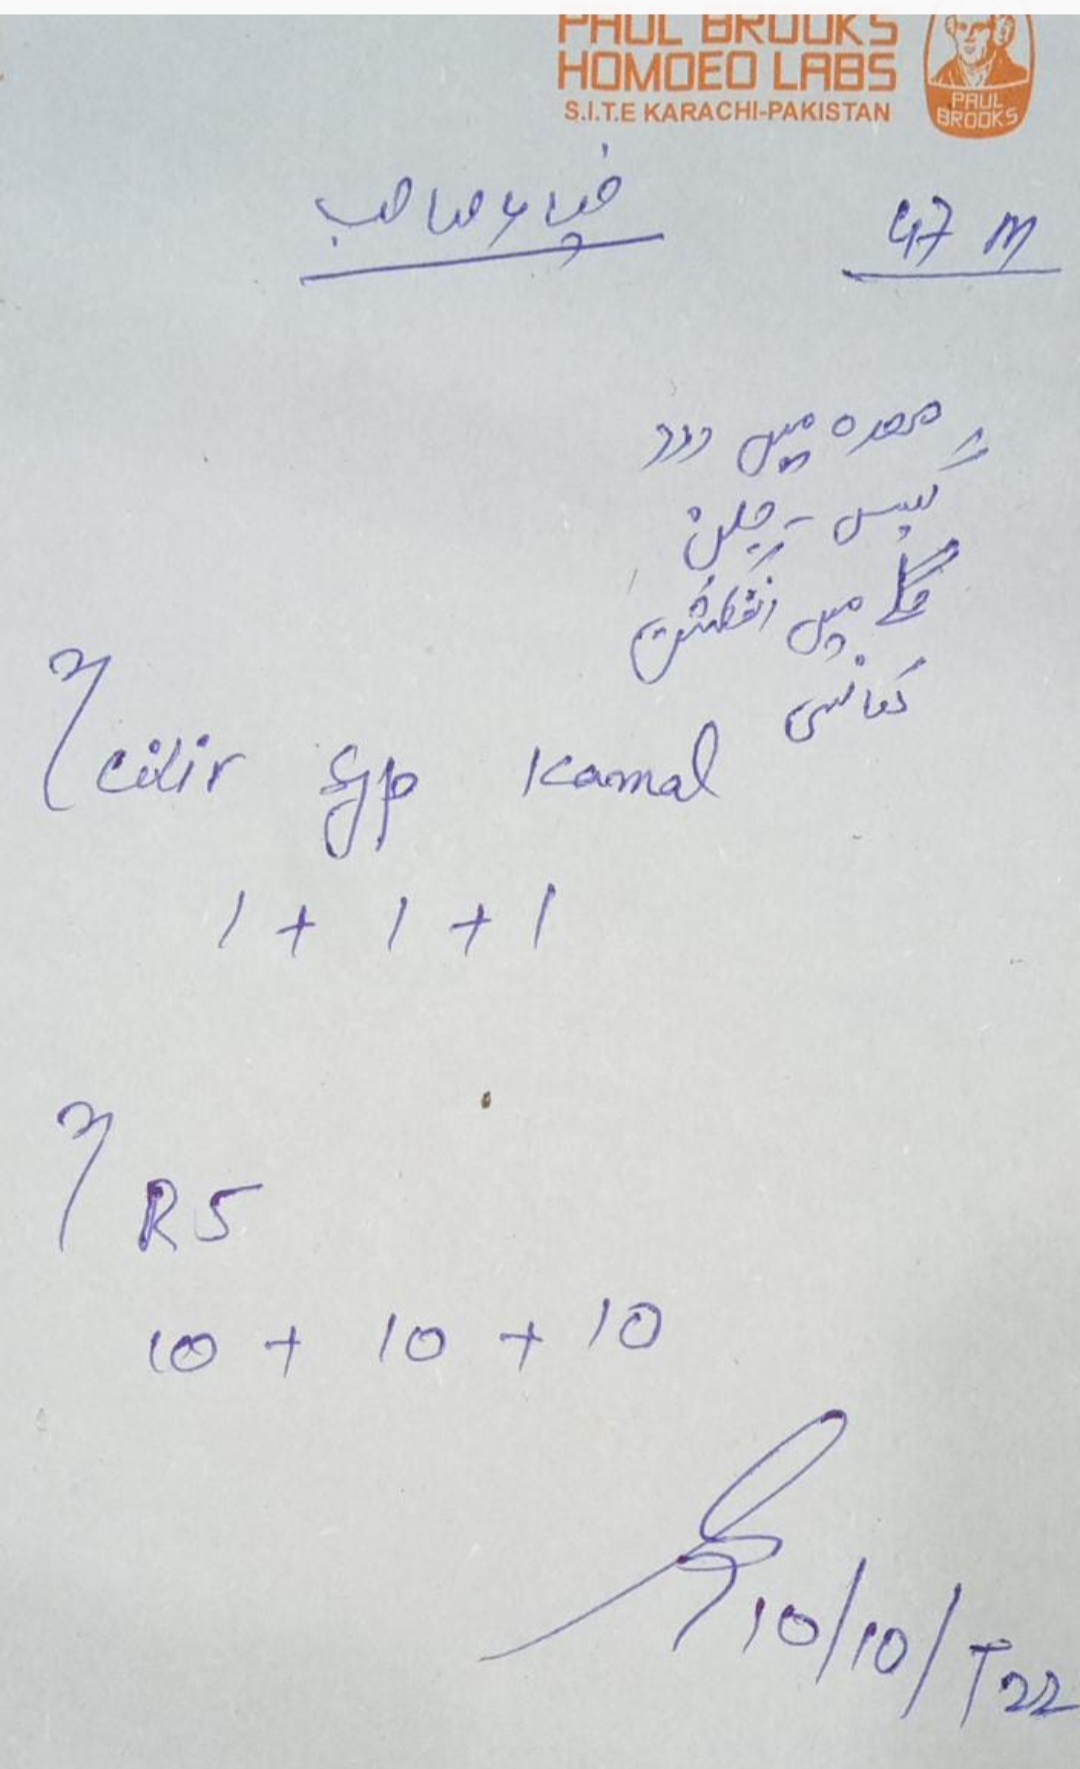 PAUL BROOKS
HOMOEO LABS
S.I.T.E KARACHI-PAKISTAN
PAUL
BROOKS
صاحب
47 M
معدہ میں درد
گیس - جلن
گلے میں انفکشن
کھانسی
Syp Kamal
1 + 1 + 1
R5
10 + 10 + 10
10/10/